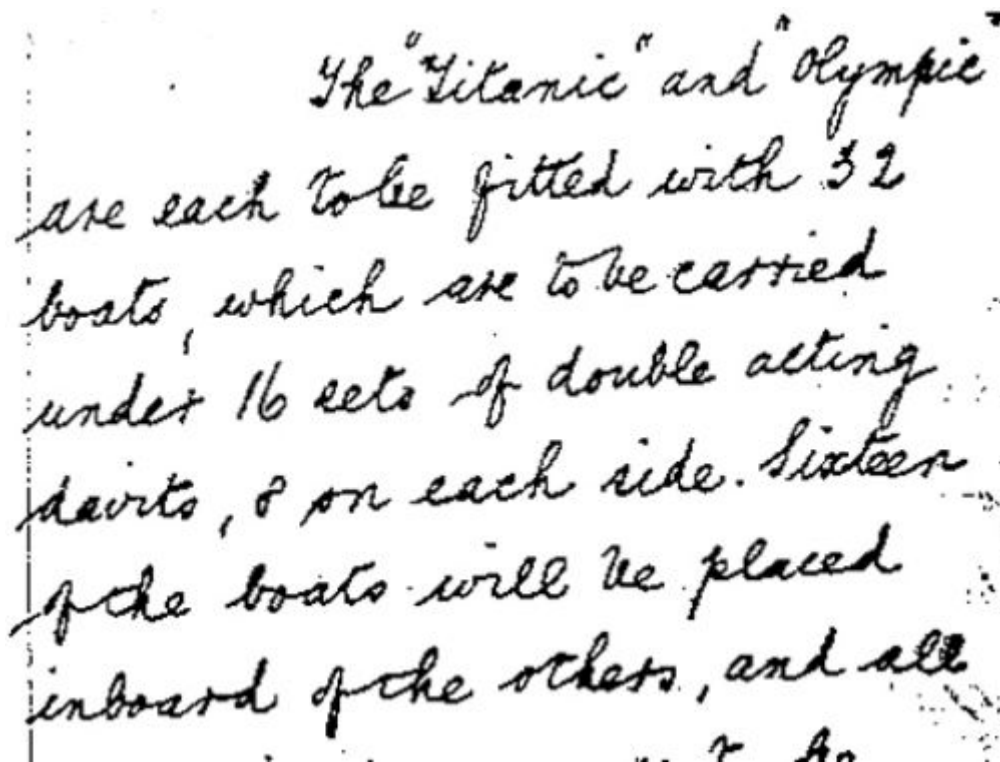 The "Titanic" and "Olympic"
are each to be fitted with 32
boats, which are to be carried
under 16 sets of double acting
davits, 8 on each side. Sixteen
of the boats will be placed
inboard of the others, and all